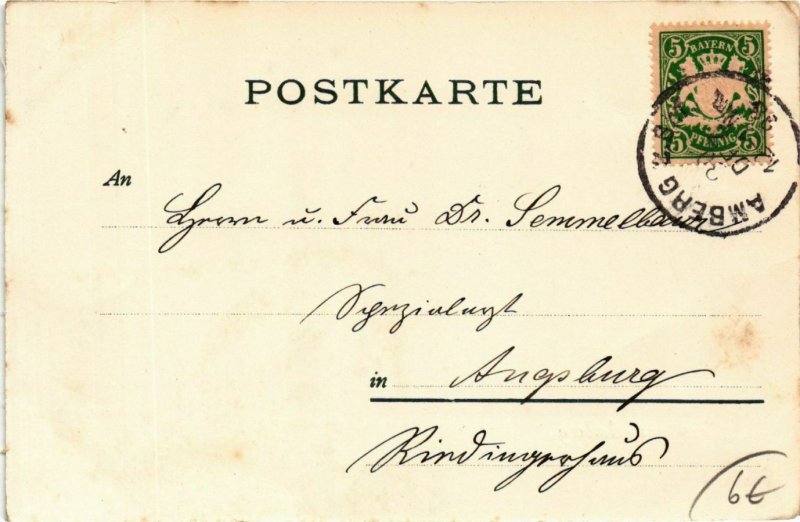 POSTKARTE
5 BAYERN 5
5 PFENNIG 5
AMBERG
An
Herrn u. Frau Dr. Semmelbaur
Spezialarzt
in Augsburg
Riedingerhaus
6€